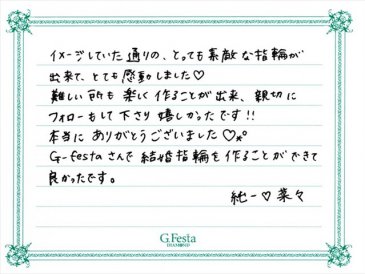 イメージしていた通りの、とっても素敵な指輪が
出来て、とても感動しました♡
難しい所も楽しく作ることが出来、親切に
フォローもして下さり嬉しかったです!!
本当にありがとうございました♡
G-festaさんで結婚指輪を作ることができて
良かったです。
純一♡菜々
G.Festa
DIAMOND